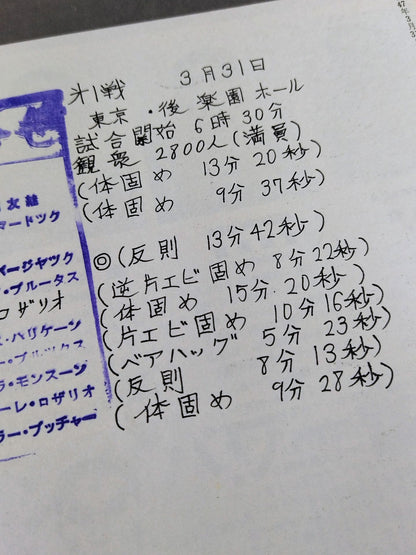 47年3月3
オ1戦 3月31日
東京・後楽園ホール
試合開始 6時30分
観衆 2800人(満員)
(体固め 13分20秒)
(体固め 9分37秒)
◎(反則 13分42秒)
(逆片エビ固め 8分22秒)
(体固め 15分20秒)
(片エビ固め 10分16秒)
(ベアハッグ 5分23秒)
(反則 8分13秒)
(体固め 9分28秒)
友雄
マードック
バージャック
・ブルータス
ロザリオ
・ハリケーン
ー・ブルックス
ラ・モンスーン
ーレ・ロザリオ
ラー・ブッチャー